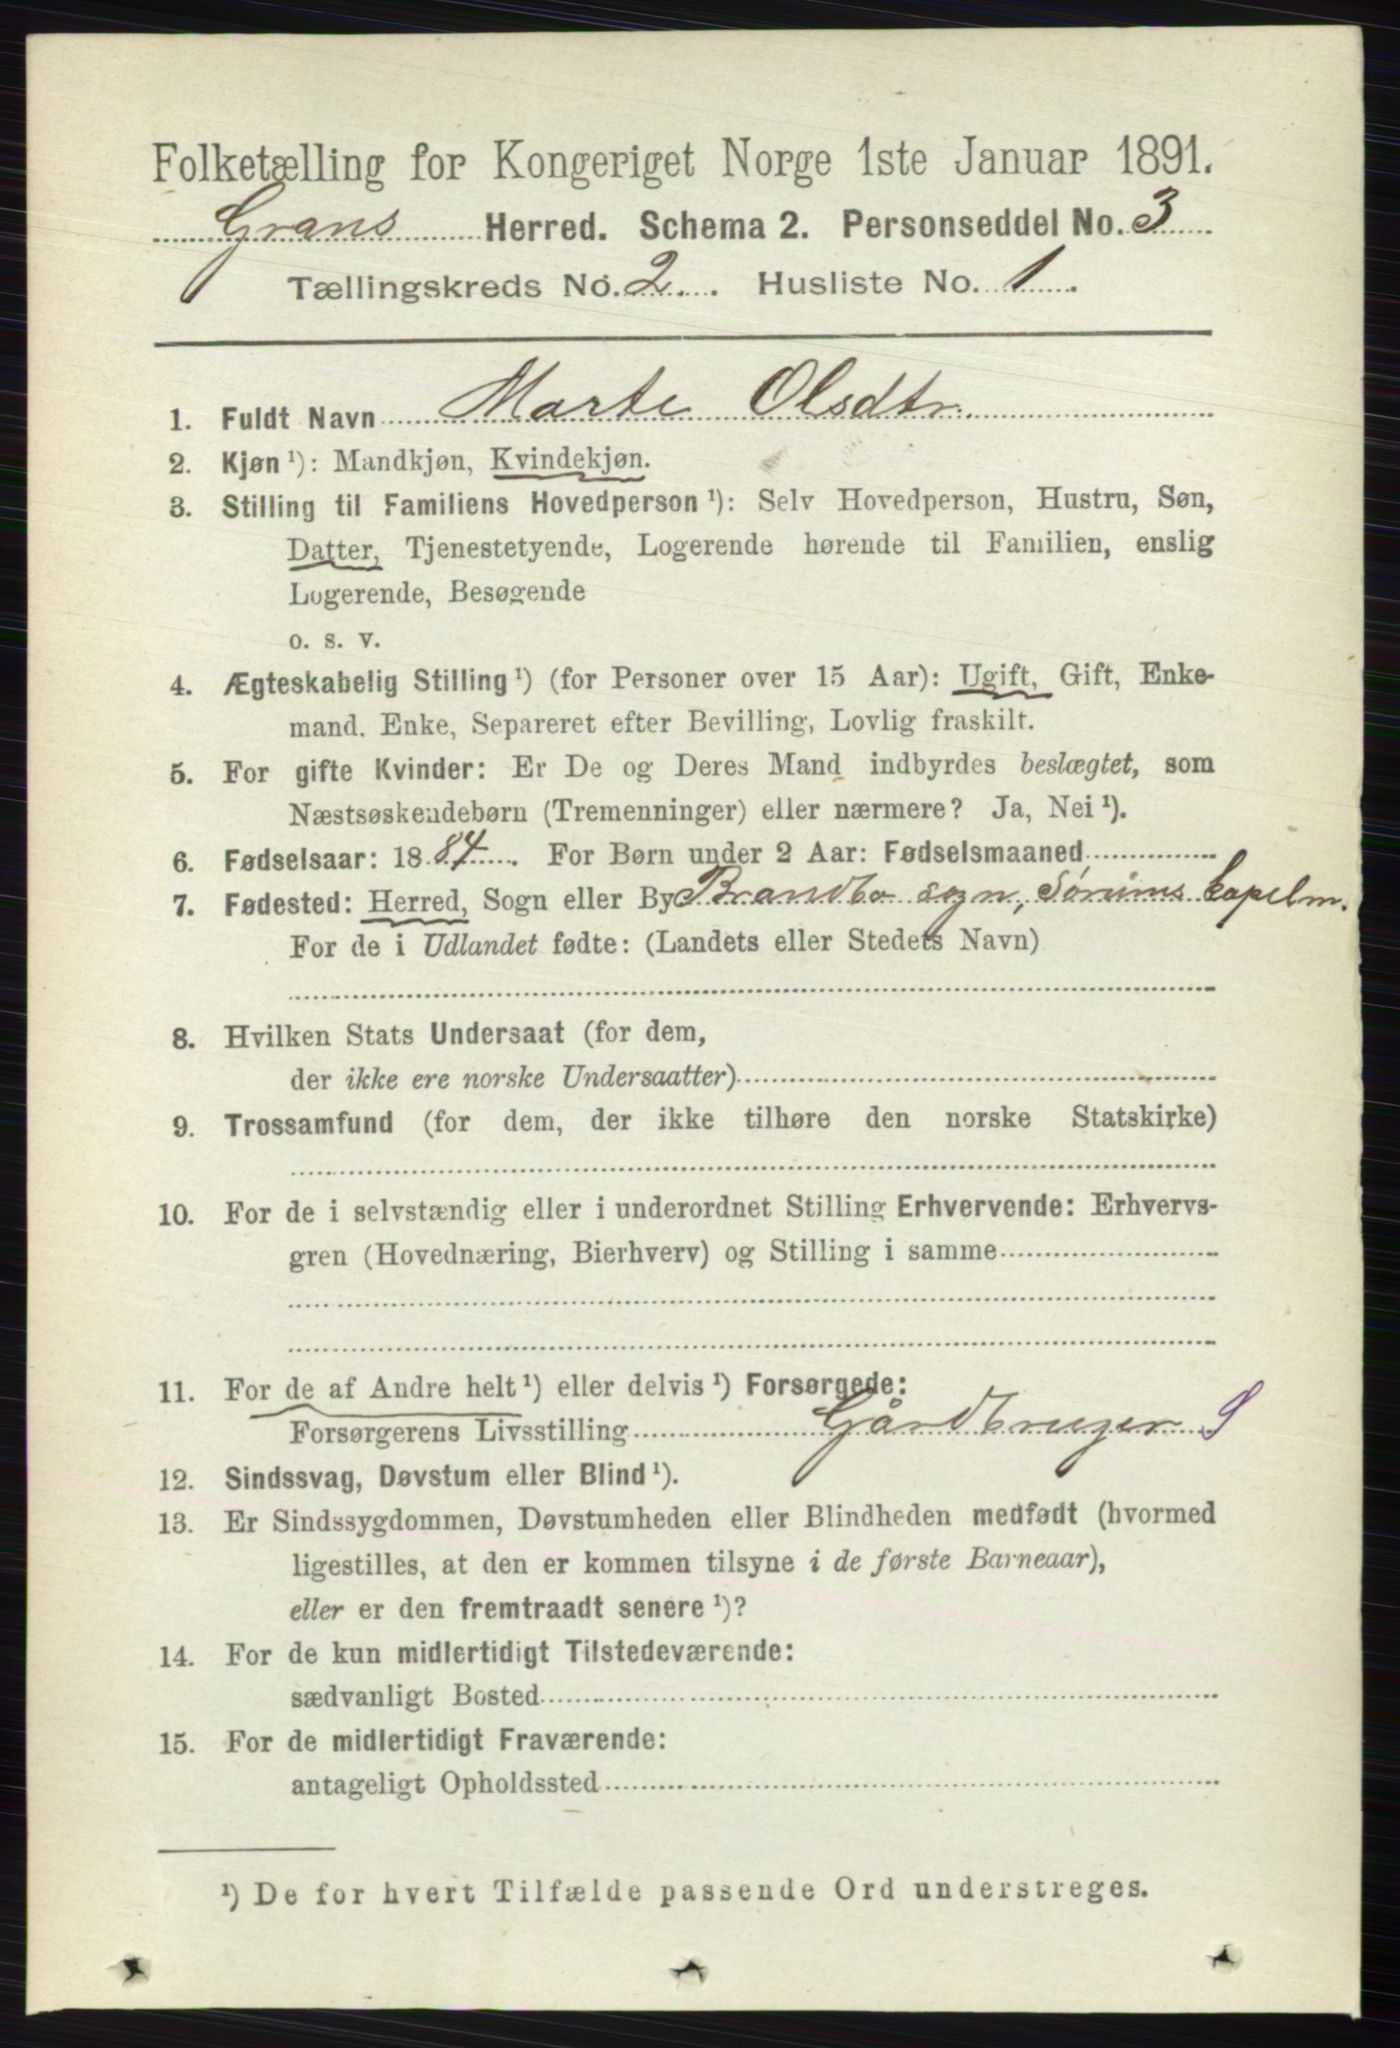 Folketælling for Kongeriget Norge 1ste Januar 1891.
Grans Herred. Schema 2. Personseddel No. 3
Tællingskreds No. 2. Husliste No. 1
1. Fuldt Navn Marte Olsdtr.
2. Kjøn ¹): Mandkjøn, Kvindekjøn.
3. Stilling til Familiens Hovedperson ¹): Selv Hovedperson, Hustru, Søn,
Datter, Tjenestetyende, Logerende hørende til Familien, enslig
Logerende, Besøgende
o. s. v.
4. Ægteskabelig Stilling ¹) (for Personer over 15 Aar): Ugift, Gift, Enke-
mand, Enke, Separeret efter Bevilling, Lovlig fraskilt.
5. For gifte Kvinder: Er De og Deres Mand indbyrdes beslægtet, som
Næstsøskendebørn (Tremenninger) eller nærmere? Ja, Nei ¹).
6. Fødselsaar: 1884. For Børn under 2 Aar: Fødselsmaaned
7. Fødested: Herred, Sogn eller By Brandbo sogn, Sørums Capelm.
For de i Udlandet fødte: (Landets eller Stedets Navn)
8. Hvilken Stats Undersaat (for dem,
der ikke ere norske Undersaatter)
9. Trossamfund (for dem, der ikke tilhøre den norske Statskirke)
10. For de i selvstændig eller i underordnet Stilling Erhvervende: Erhvervs-
gren (Hovednæring, Bierhverv) og Stilling i samme
11. For de af Andre helt ¹) eller delvis ¹) Forsørgede:
Forsørgerens Livsstilling Gårdbruger S
12. Sindssvag, Døvstum eller Blind ¹).
13. Er Sindssygdommen, Døvstumheden eller Blindheden medfødt (hvormed
ligestilles, at den er kommen tilsyne i de første Barneaar),
eller er den fremtraadt senere ¹)?
14. For de kun midlertidigt Tilstedeværende:
sædvanligt Bosted
15. For de midlertidigt Fraværende:
antageligt Opholdssted
¹) De for hvert Tilfælde passende Ord understreges.